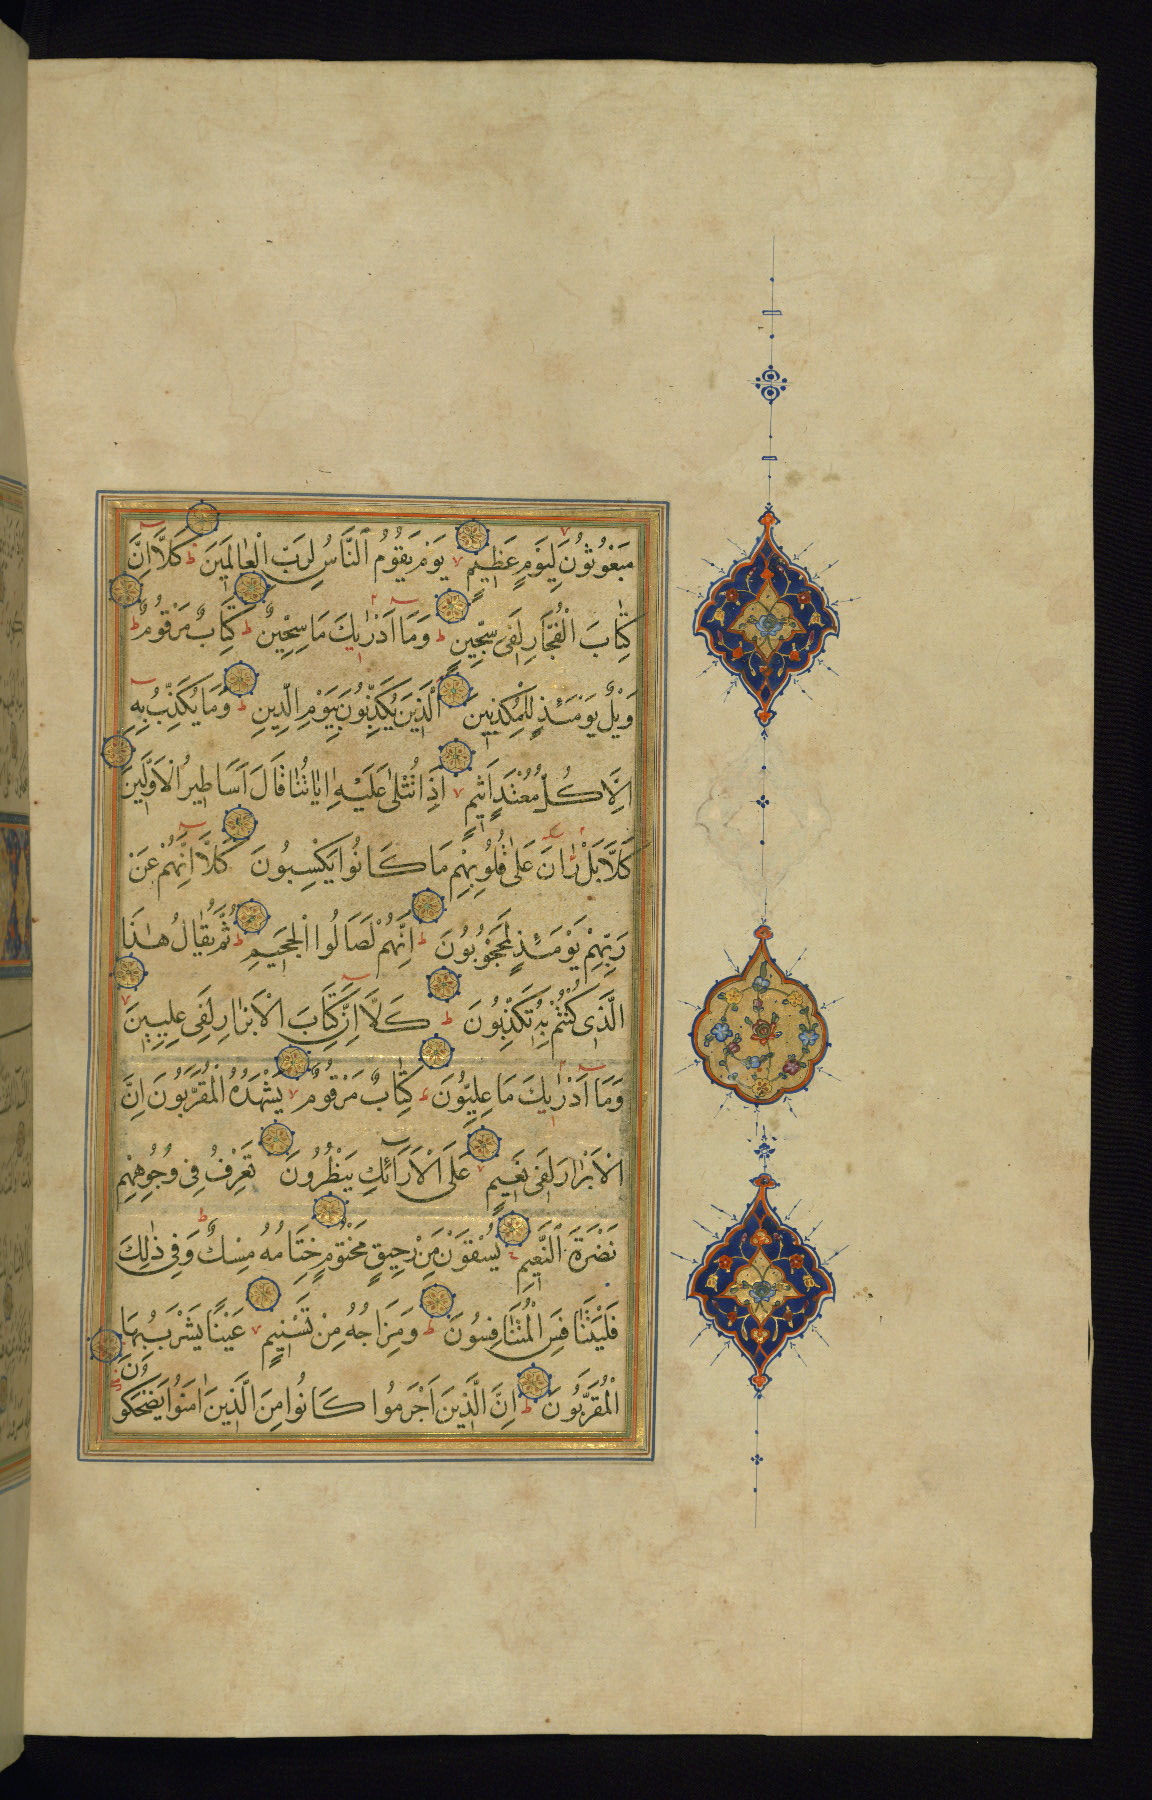 مَبْعُوثُونَ لِيَوْمٍ عَظِيمٍ يَوْمَ يَقُومُ ٱلنَّاسُ لِرَبِّ الْعٰالَمِينَ ط كَلَّا اِنَّ
كِتٰابَ الْفُجّٰارِ لَفِى سِجِّينٍ ط وَمَا اَدْرٰيكَ مَا سِجِّينٌ ط كِتَابٌ مَرْقُومٌ ط
وَيْلٌ يَوْمَئِذٍ لِلْمُكَذِّبِينَ اَلَّذِينَ يُكَذِّبُونَ بِيَوْمِ الدِّينِ ط وَمَا يُكَذِّبُ بِهِ
اِلَّا كُلُّ مُعْتَدٍ اَثِيمٍ اِذٰا تُتْلٰى عَلَيْهِ اٰيَاتُنَا قَالَ اَسَاطِيرُ الْاَوَّلِينَ
كَلَّا بَلْ رٰانَ عَلٰى قُلُوبِهِمْ مَا كَانُوا يَكْسِبُونَ كَلَّا اِنَّهُمْ عَنْ
رَبِّهِمْ يَوْمَئِذٍ لَمَحْجُوبُونَ ط اِنَّهُمْ لَصَالُوا الْجَحِيمِ ط ثُمَّ يُقٰالُ هٰذَا
الَّذِى كُنْتُمْ بِهِ تُكَذِّبُونَ ط كَلَّا اِنَّ كِتَابَ الْاَبْرٰارِ لَفِى عِلِّيِّينَ
وَمَا اَدْرٰيكَ مَا عِلِّيُّونَ ط كِتٰابٌ مَرْقُومٌ يَشْهَدُهُ الْمُقَرَّبُونَ اِنَّ
الْاَبْرٰارَ لَفِى نَعِيمٍ عَلَى الْاَرَآئِكِ يَنْظُرُونَ تَعْرِفُ فِى وُجُوهِهِمْ
نَضْرَةَ ٱلنَّعِيمِ يُسْقَوْنَ مِنْ رَحِيقٍ مَخْتُومٍ خِتَامُهُ مِسْكٌ ط وَفِى ذٰلِكَ
فَلْيَتَنَافَسِ الْمُتَنَافِسُونَ ط وَمِزَاجُهُ مِنْ تَسْنِيمٍ عَيْنًا يَشْرَبُ بِهَا
الْمُقَرَّبُونَ ط اِنَّ الَّذِينَ اَجْرَمُوا كَانُوا مِنَ الَّذِينَ اٰمَنُوا يَضْحَكُونَ